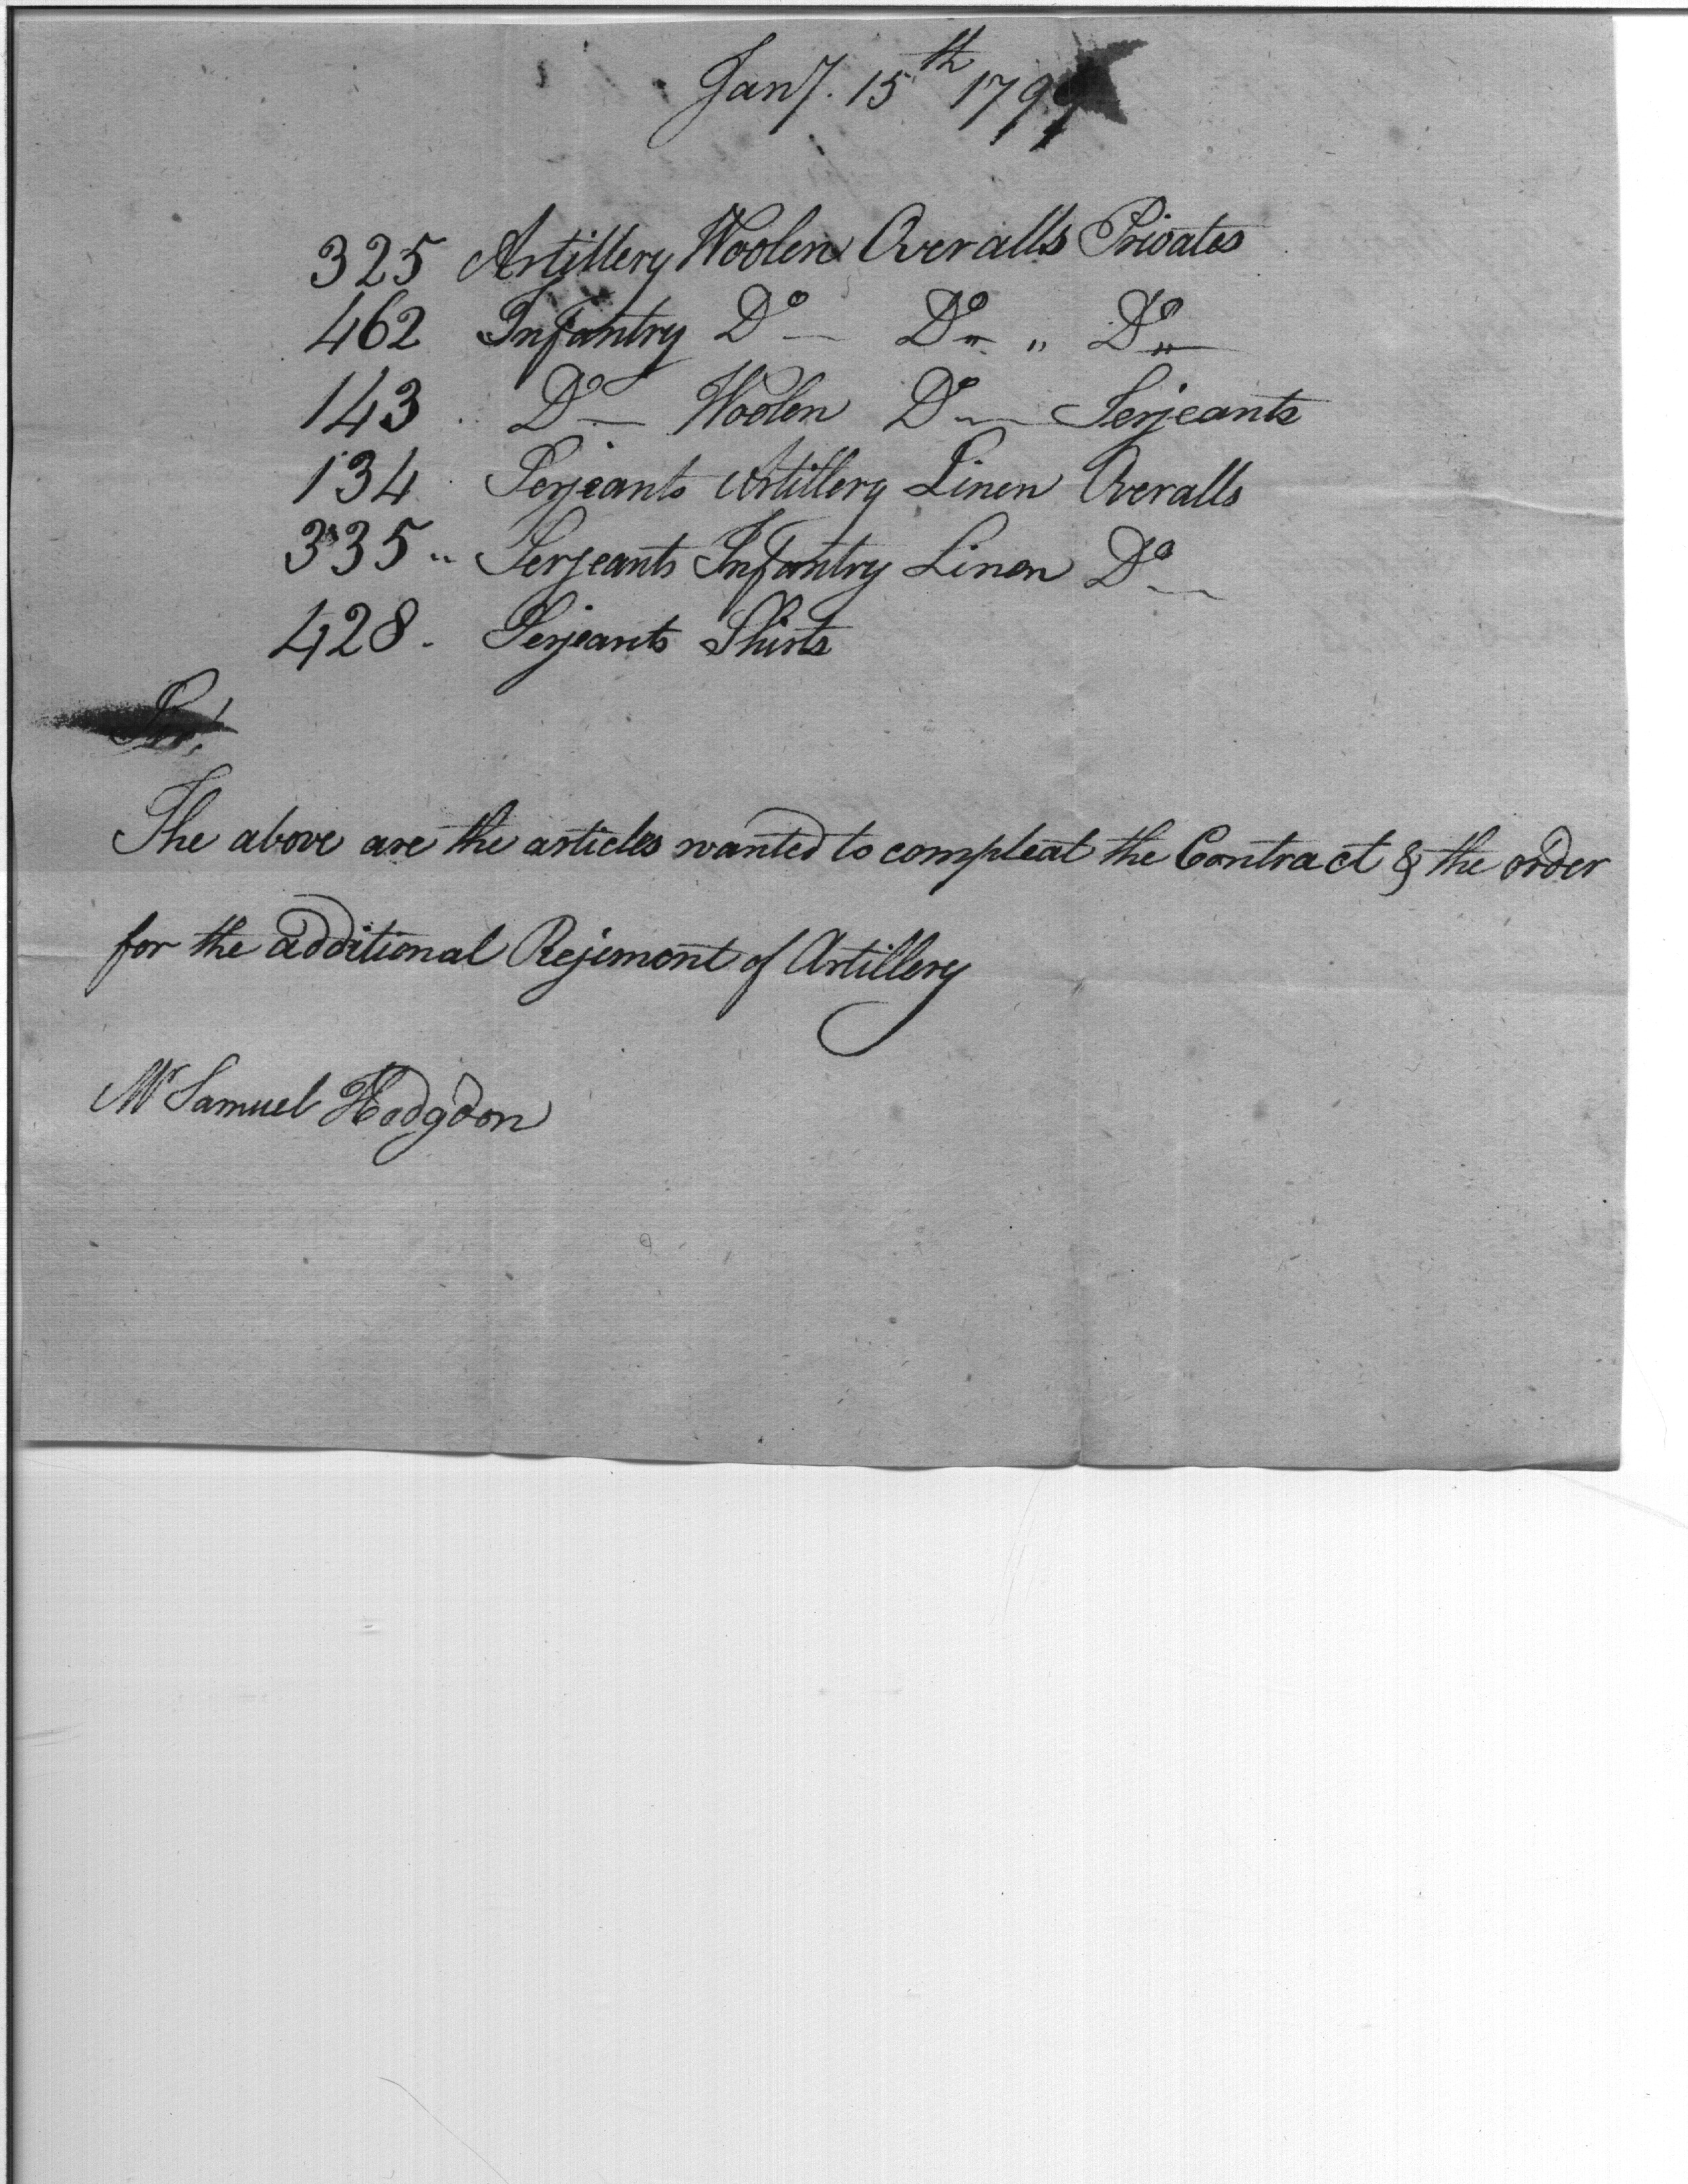 Jany. 15th 1799
325 Artillery Woolen Overalls Privates
462 Infantry Do — Do „ Do
143 Do — Woolen Do — Serjeants
134 Serjeants Artillery Linen Overalls
335 „ Serjeants Infantry Linen Do —
428 . Serjeants Shirts
Sir,
The above are the articles wanted to compleat the Contract & the order
for the additional Rejement of Artillery
Mr Samuel Hodgdon